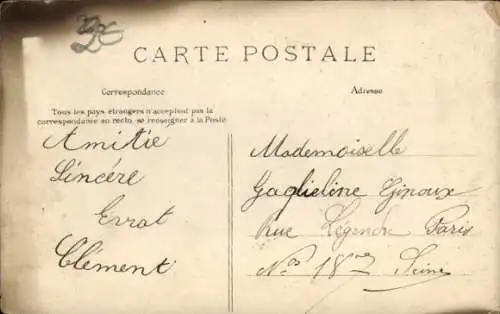 CARTE POSTALE
Correspondance
Tous les pays étrangers n'acceptent pas la
correspondance au recto, se renseigner à la Poste
Amitie
Sincére
Errat
Clément
Adresse
Mademoiselle
Ginoux
Rue Légendre Paris
Nos 18 Seine